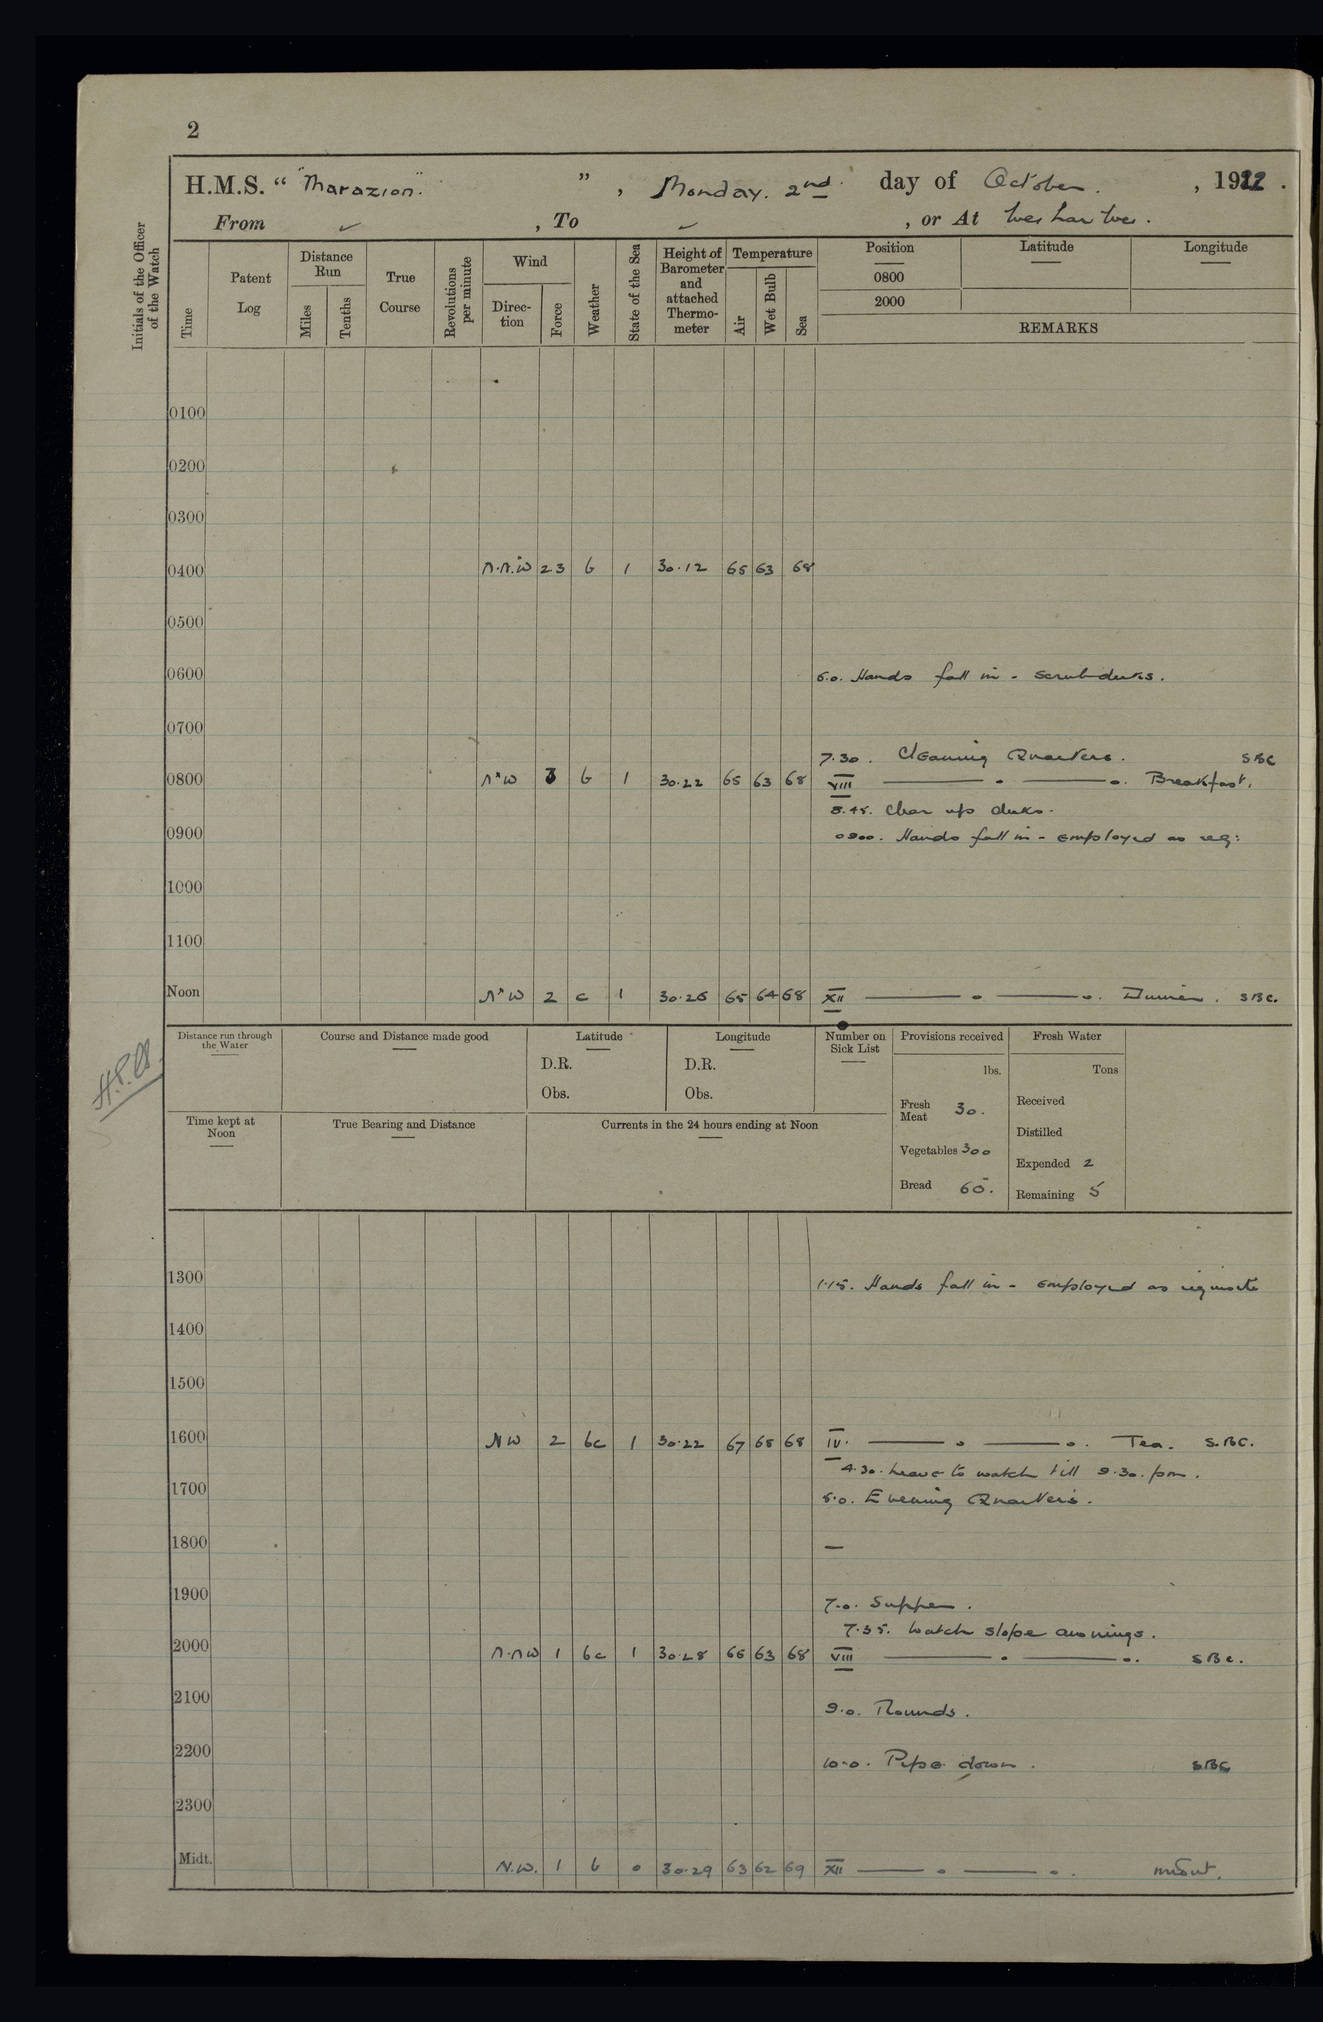 2
H.M.S. “ "Marazion" ” , Monday. 2nd. day of October. , 1922 .
From ✓ , To ✓ , or At Wei hai Wei.
Initials of the Officer of the Watch
Time
Patent Log
Distance Run
Miles
Tenths
True Course
Revolutions per minute
Wind
Direction
Force
Weather
State of the Sea
Height of Barometer and attached Thermometer
Temperature
Air
Wet Bulb
Sea
Position
Latitude
Longitude
0800
2000
REMARKS
0100
0200
0300
0400 N.N.W 23 b 1 30.12 65 63 68
0500
0600 6.0. Hands fall in - scrub decks.
0700
7.30. Cleaning Quarters. SBC
0800 N'W 3 b 1 30.22 65 63 68 VIII Breakfast.
8.45. Clear up decks.
0900 0900. Hands fall in - employed as req:
1000
1100
Noon N'W 2 c 1 30.26 65 64 68 XII Dinner. SBC.
Distance run through the Water
Course and Distance made good
Latitude
D.R.
Obs.
Longitude
D.R.
Obs.
Number on Sick List
Provisions received
lbs.
Fresh Meat 30.
Vegetables 300
Bread 60.
Fresh Water
Tons
Received
Distilled
Expended 2
Remaining 5
Time kept at Noon
True Bearing and Distance
Currents in the 24 hours ending at Noon
1300 1.15. Hands fall in - employed as requisite
1400
1500
1600 NW 2 bc 1 30.22 67 65 68 IV. Tea. S.BC.
4.30. Leave to watch till 9.30. pm.
1700 5.0. Evening Quarters.
1800 —
1900 7.0. Supper.
7.35. Watch slope awnings.
2000 N.NW 1 bc 1 30.28 66 63 68 VIII SBC.
2100 9.0. Rounds.
2200 10.0. Pipe down. SBC
2300
Midt. N.W. 1 b 0 30.29 63 62 69 XII